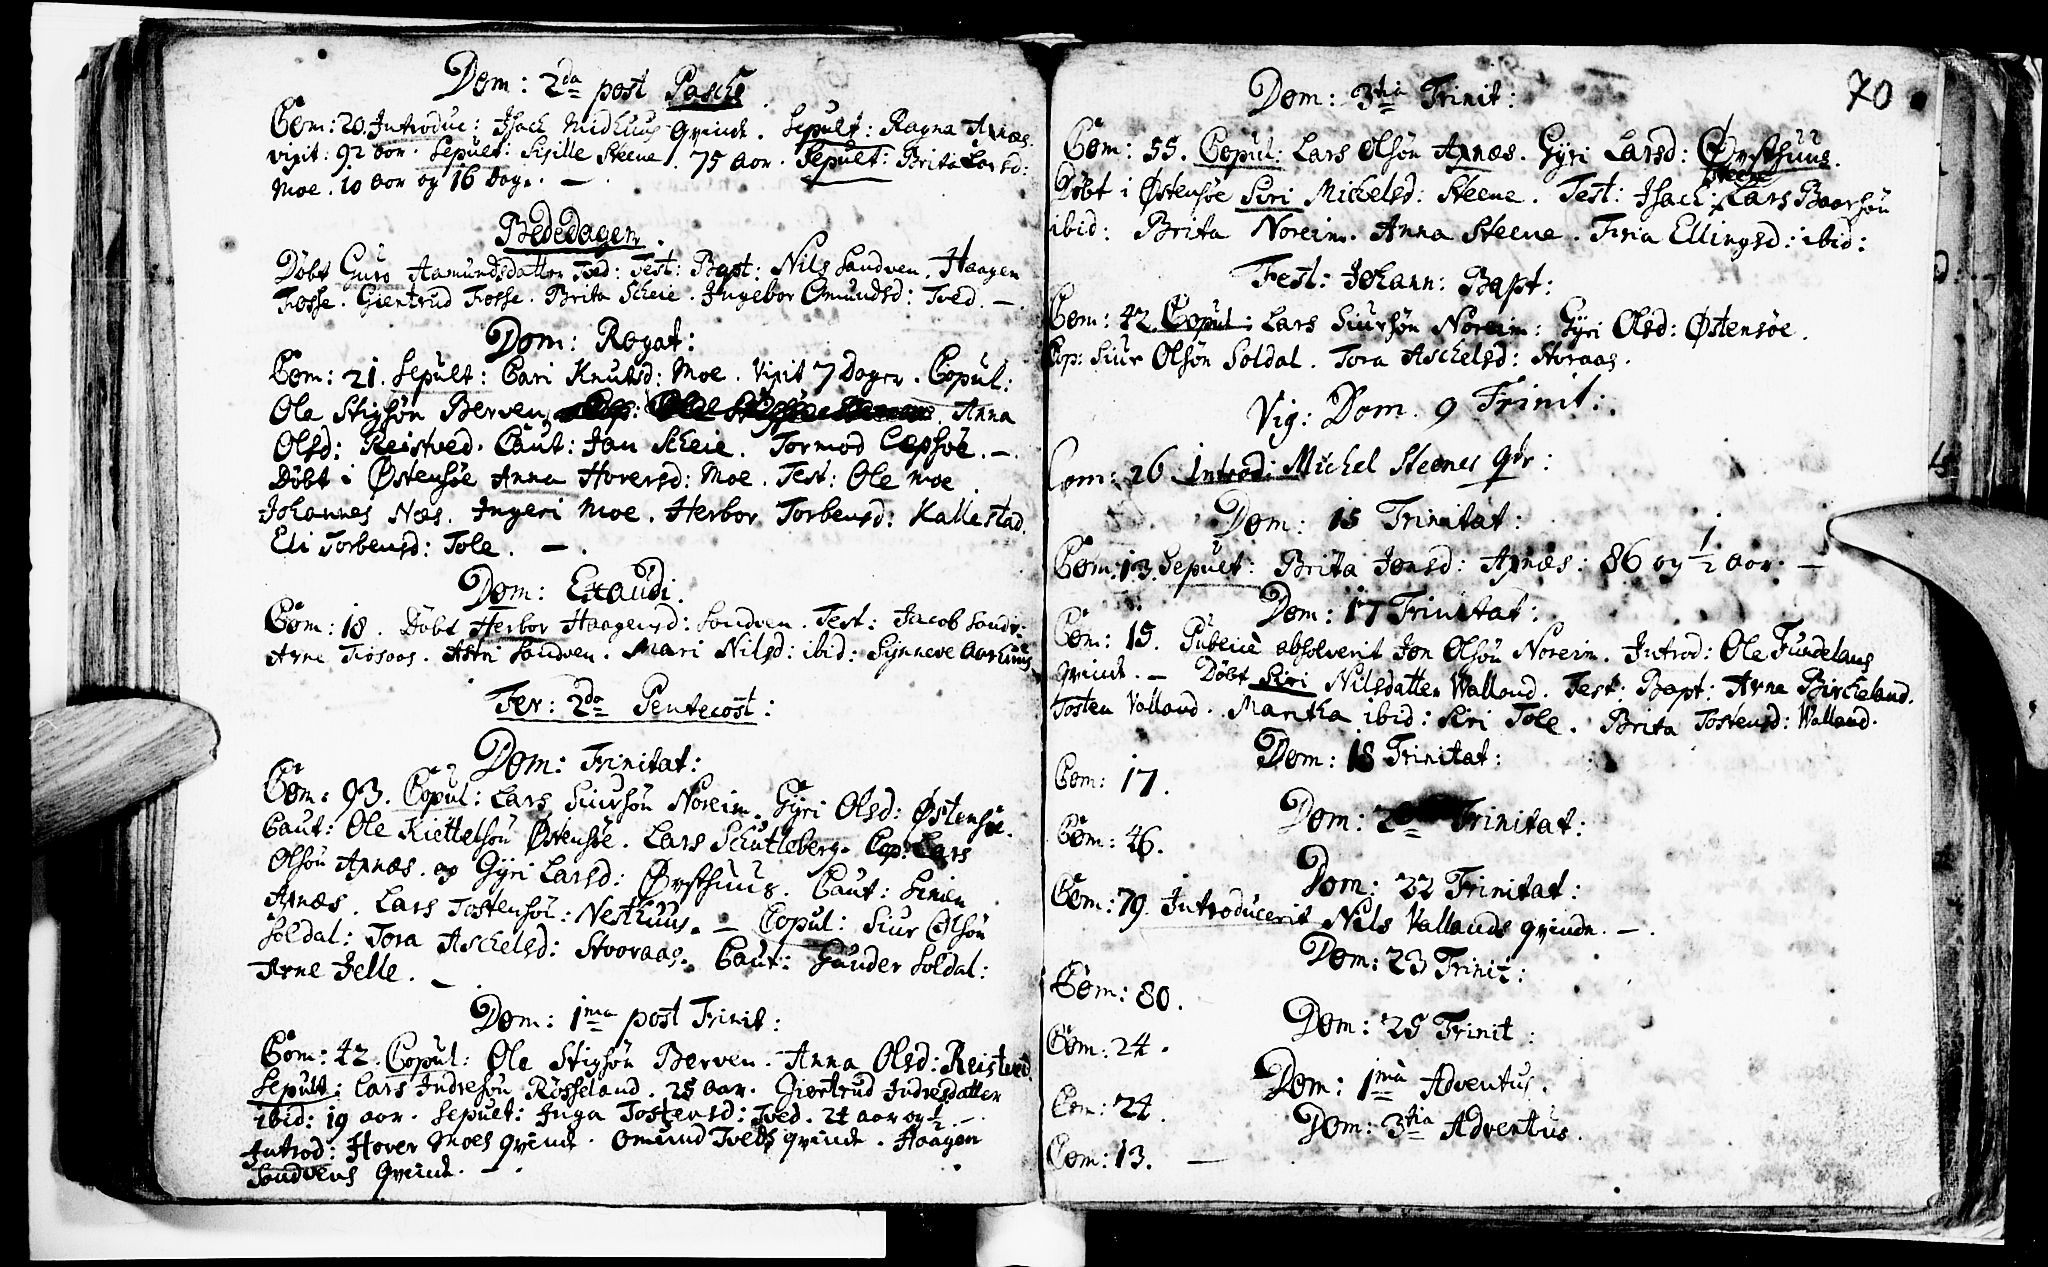 Dom: 2da post Pasche
Com: 20. Introduc: Isach Midthuus Qvinde. Sepult: Ragna Axnæs
vixit: 92 aar. Sepult: Sisille Steene. 75 aar. Sepult: Brita Larsd:
Moe. 10 aar og 16 dage. —
Bededagen.
Døbt Guro Aamundsdatter Tved: Test: Bapt: Nils Sandven. Haagen
Fosse. Giertrud Fosse. Brita Scheie. Ingebor Omundsd: Tved. —
Dom: Rogat:
Com: 21. Sepult: Cari Knutsd: Moe. Vixit 7 Dager. Copul:
Ole Stigsøn Berven, Anna
Olsd: Reistved. Caut: Jan Scheie. Tormod Lepsøe. —
Døbt i Østensøe Anna Hoversd: Moe. Test: Ole Moe
Johannes Næs. Ingeri Moe. Herbor Torbensd: Kallestad.
Eli Torbensd: Tole. —.
Dom: Exaudi.
Com: 18. Døbt Herbor Haagensd: Sandven. Test: Jacob Sandv:
Arne Tiosaas. Astri Sandven. Mari Nilsd: ibid: Synneve Aarhuus
Fer: 2da Pentecost:
Dom: Trinitat:
Com: 93. Copul: Lars Siursøn Noreim. Gyri Olsd: Østensøe.
Caut: Ole Kiettelsøn Østensøe. Lars Schutleberg. Cop: Lars
Olsøn Axnæs. og Gyri Larsd: Ørsthuus. Caut: Simen
Axnæs. Lars Tostensøn: Nesthuus. — Copul: Siur Olsøn
Soldal: Tora Aschelsd: Stooraas. Caut: Gunder Soldal:
Arne Jelle. —.
Dom: 1ma post Trinit:
Com: 42. Copul: Ole Stigsøn Berven. Anna Olsd: Reistved.
Sepult: Lars Indresøn Røsseland. 25 aar. Giertrud Indresdatter
ibid: 19 aar. Sepult: Inga Tostensd: Tved. 24 aar og ½. —
Introd: Hover Moes qvinde. Omund Tveds qvinde. Haagen
Sandvens Qvinde. —.
70
Dom: 3tia Trinit:
Com: 55. Copul: Lars Olsøn Axnæs. Gyri Larsd: Ørsthuus.
Steene
Døbt i Østensøe Siri Michelsd: Steene. Test: Isach: Lars Baarsøn
ibid: Brita Noreim. Anna Steene. Siria Ellingsd: ibid:
Fest: Johann: Bapt:
Com: 42. Copul: Lars Siursøn Noreim: Gyri Olsd: Østensøe.
Cop: Siur Olsøn Soldal. Tora Aschelsd: Storaas.
Vig: Dom. 9 Trinit:
Com: 26. Introd: Michel Steenes qv:
Dom: 15 Trinitat:
Com: 13. Sepult: Brita Jonsd: Axnæs: 86 og ½ aar. —
Dom: 17 Trinitat:
Com: 15. Publice absolverit Jon Olsøn Noreim. Introd: Ole Fundelans
Qvinde. — Døbt Siri Nilsdatter Walland. Test: Bapt: Arne Bircheland.
Tosten Valland. Maritha ibid: Siri Tole. Brita Tostensd: Walland.
Dom: 18 Trinitat:
Com: 17.
Dom: Trinitat:
Com: 46.
Dom: 22 Trinitat:
Com: 79. Introducerit Nils Vallands qvinde. —.
Dom: 23 Trinit:
Com: 80.
Dom: 25 Trinit:
Com: 24.
Dom: 1ma Adventus.
Com: 24.
Dom: 3tia Adventus.
Com: 13. —